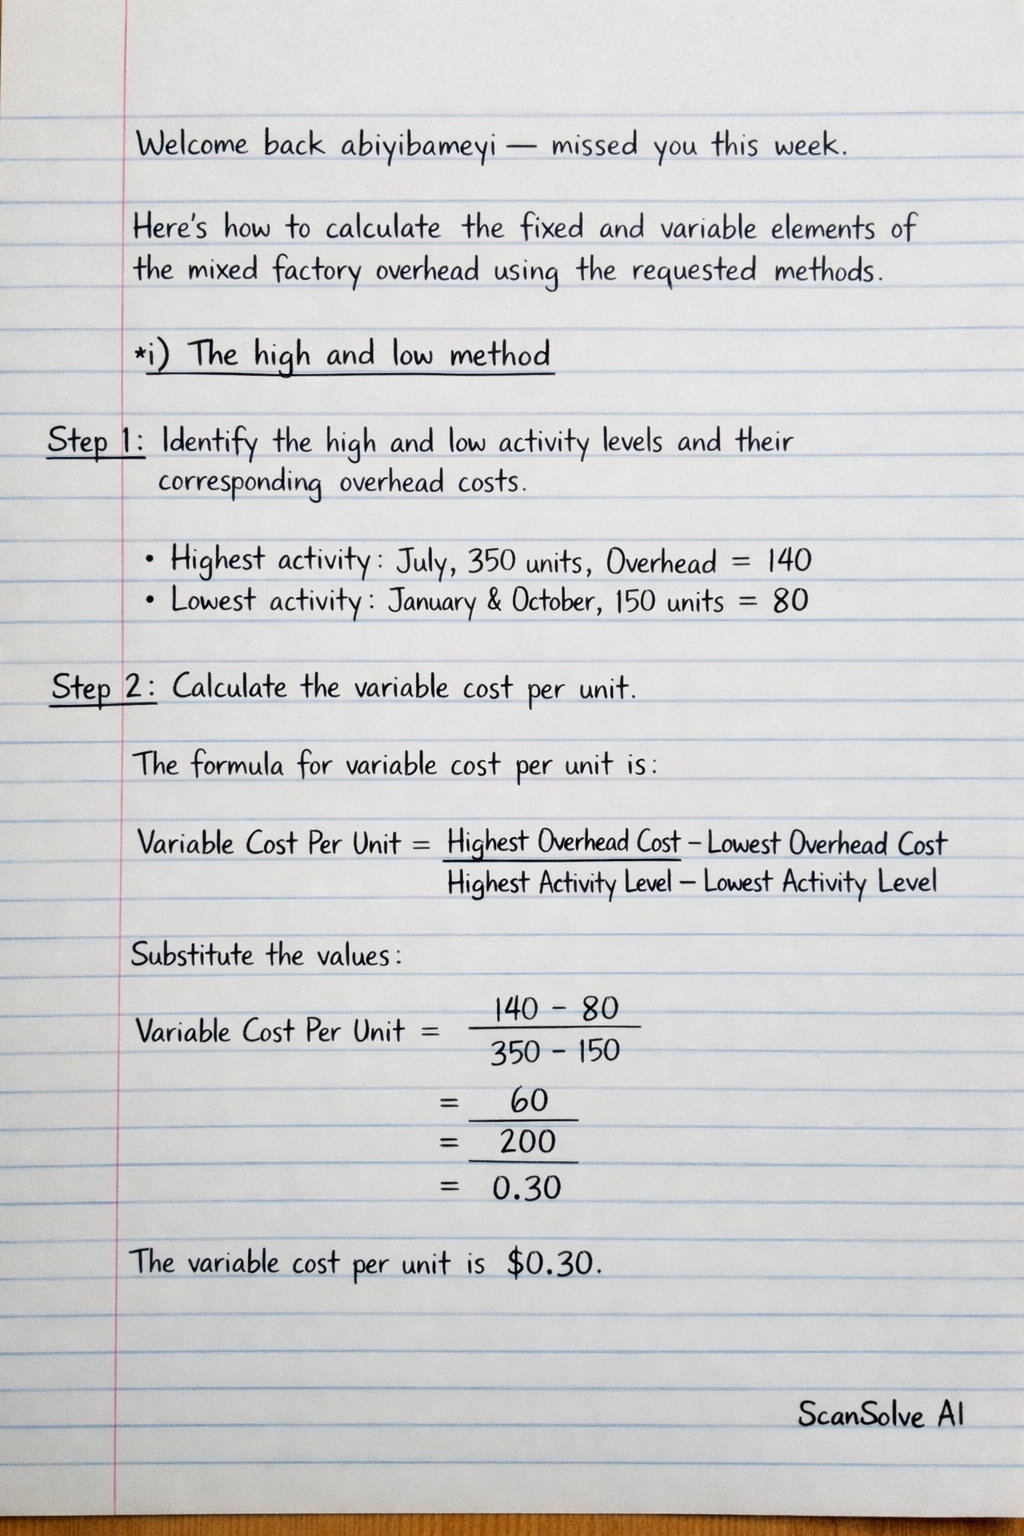 Welcome back abiyibameyi — missed you this week.
Here's how to calculate the fixed and variable elements of
the mixed factory overhead using the requested methods.
*i) The high and low method
Step 1: Identify the high and low activity levels and their
corresponding overhead costs.
• Highest activity: July, 350 units, Overhead = 140
• Lowest activity: January & October, 150 units = 80
Step 2: Calculate the variable cost per unit.
The formula for variable cost per unit is:
Variable Cost Per Unit = Highest Overhead Cost – Lowest Overhead Cost
Highest Activity Level – Lowest Activity Level
Substitute the values:
140 - 80
Variable Cost Per Unit =
350 - 150
= 60
= 200
= 0.30
The variable cost per unit is $0.30.
ScanSolve AI